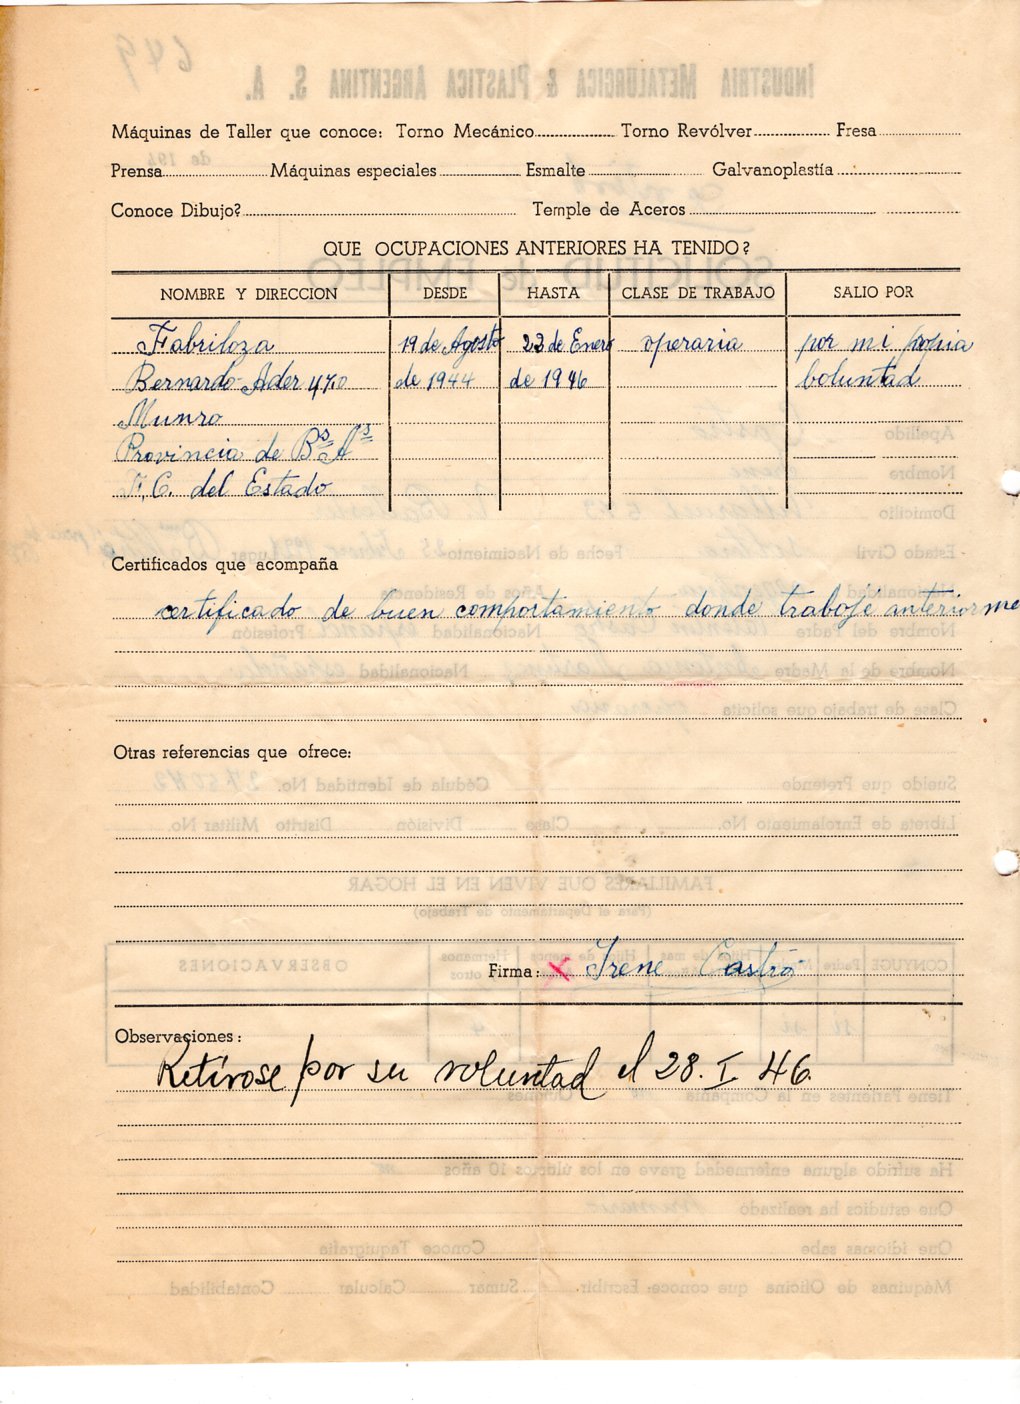 Máquinas de Taller que conoce: Torno Mecánico Torno Revólver Fresa
Prensa Máquinas especiales Esmalte Galvanoplastía
Conoce Dibujo? Temple de Aceros
QUE OCUPACIONES ANTERIORES HA TENIDO?
NOMBRE Y DIRECCION DESDE HASTA CLASE DE TRABAJO SALIO POR
Fabriloza 19 de Agosto 23 de Enero operaria por mi propia
Bernardo Ader 470 de 1944 de 1946 boluntad
Munro
Provincia de Bs As
F.C. del Estado
Certificados que acompaña
certificado de buen comportamiento donde trabojé anteriorme
Otras referencias que ofrece:
Firma: X Irene Castro
Observaciones:
Retírose por su voluntad el 28. I. 46.